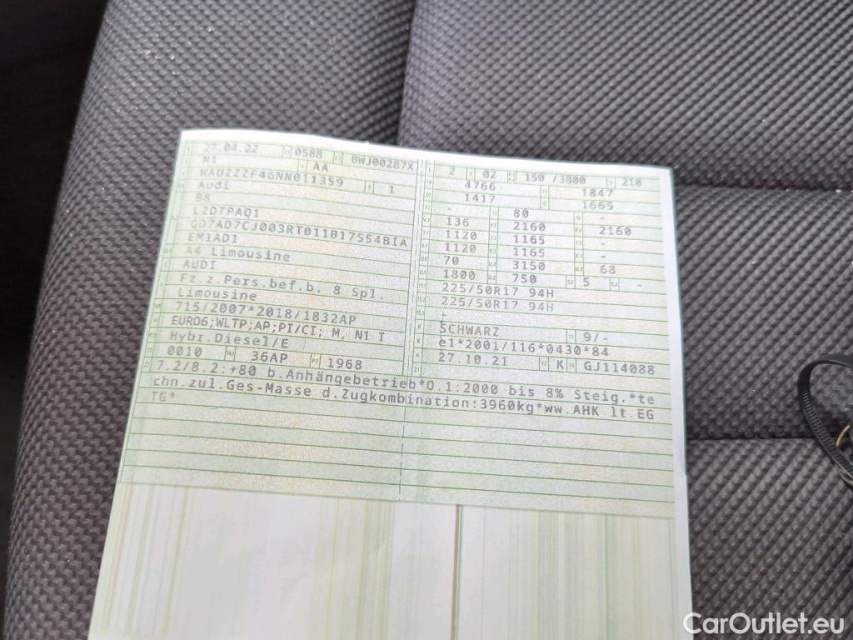 27.04.22 0588 0WJ00287X
M1 AA
WAUZZZF46NN011359 1
Audi
B8
L2DTPAQ1
QD7AD7CJ003RT011817S54BIA
EM1AD1
A4 Limousine
AUDI
Fz.z.Pers.bef.b. 8 Spl.
Limousine
715/2007*2018/1832AP
EURO6;WLTP;AP;PI/CI; M, N1 I
Hybr.Diesel/E
0010 36AP 1968
2 02 150 /3800 210
4766 1847
1417 1665
- 80 -
136 2160 2160
1120 1165 -
1120 1165 -
70 3150 68
1800 750 5 -
225/50R17 94H
225/50R17 94H
-
SCHWARZ 9/-
e1*2001/116*0430*84
27.10.21 K GJ114088
7.2/8.2:+80 b.Anhängebetrieb*O.1:2000 bis 8% Steig.*te
chn.zul.Ges-Masse d.Zugkombination:3960kg*ww.AHK lt.EG
TG*
CarOutlet.eu